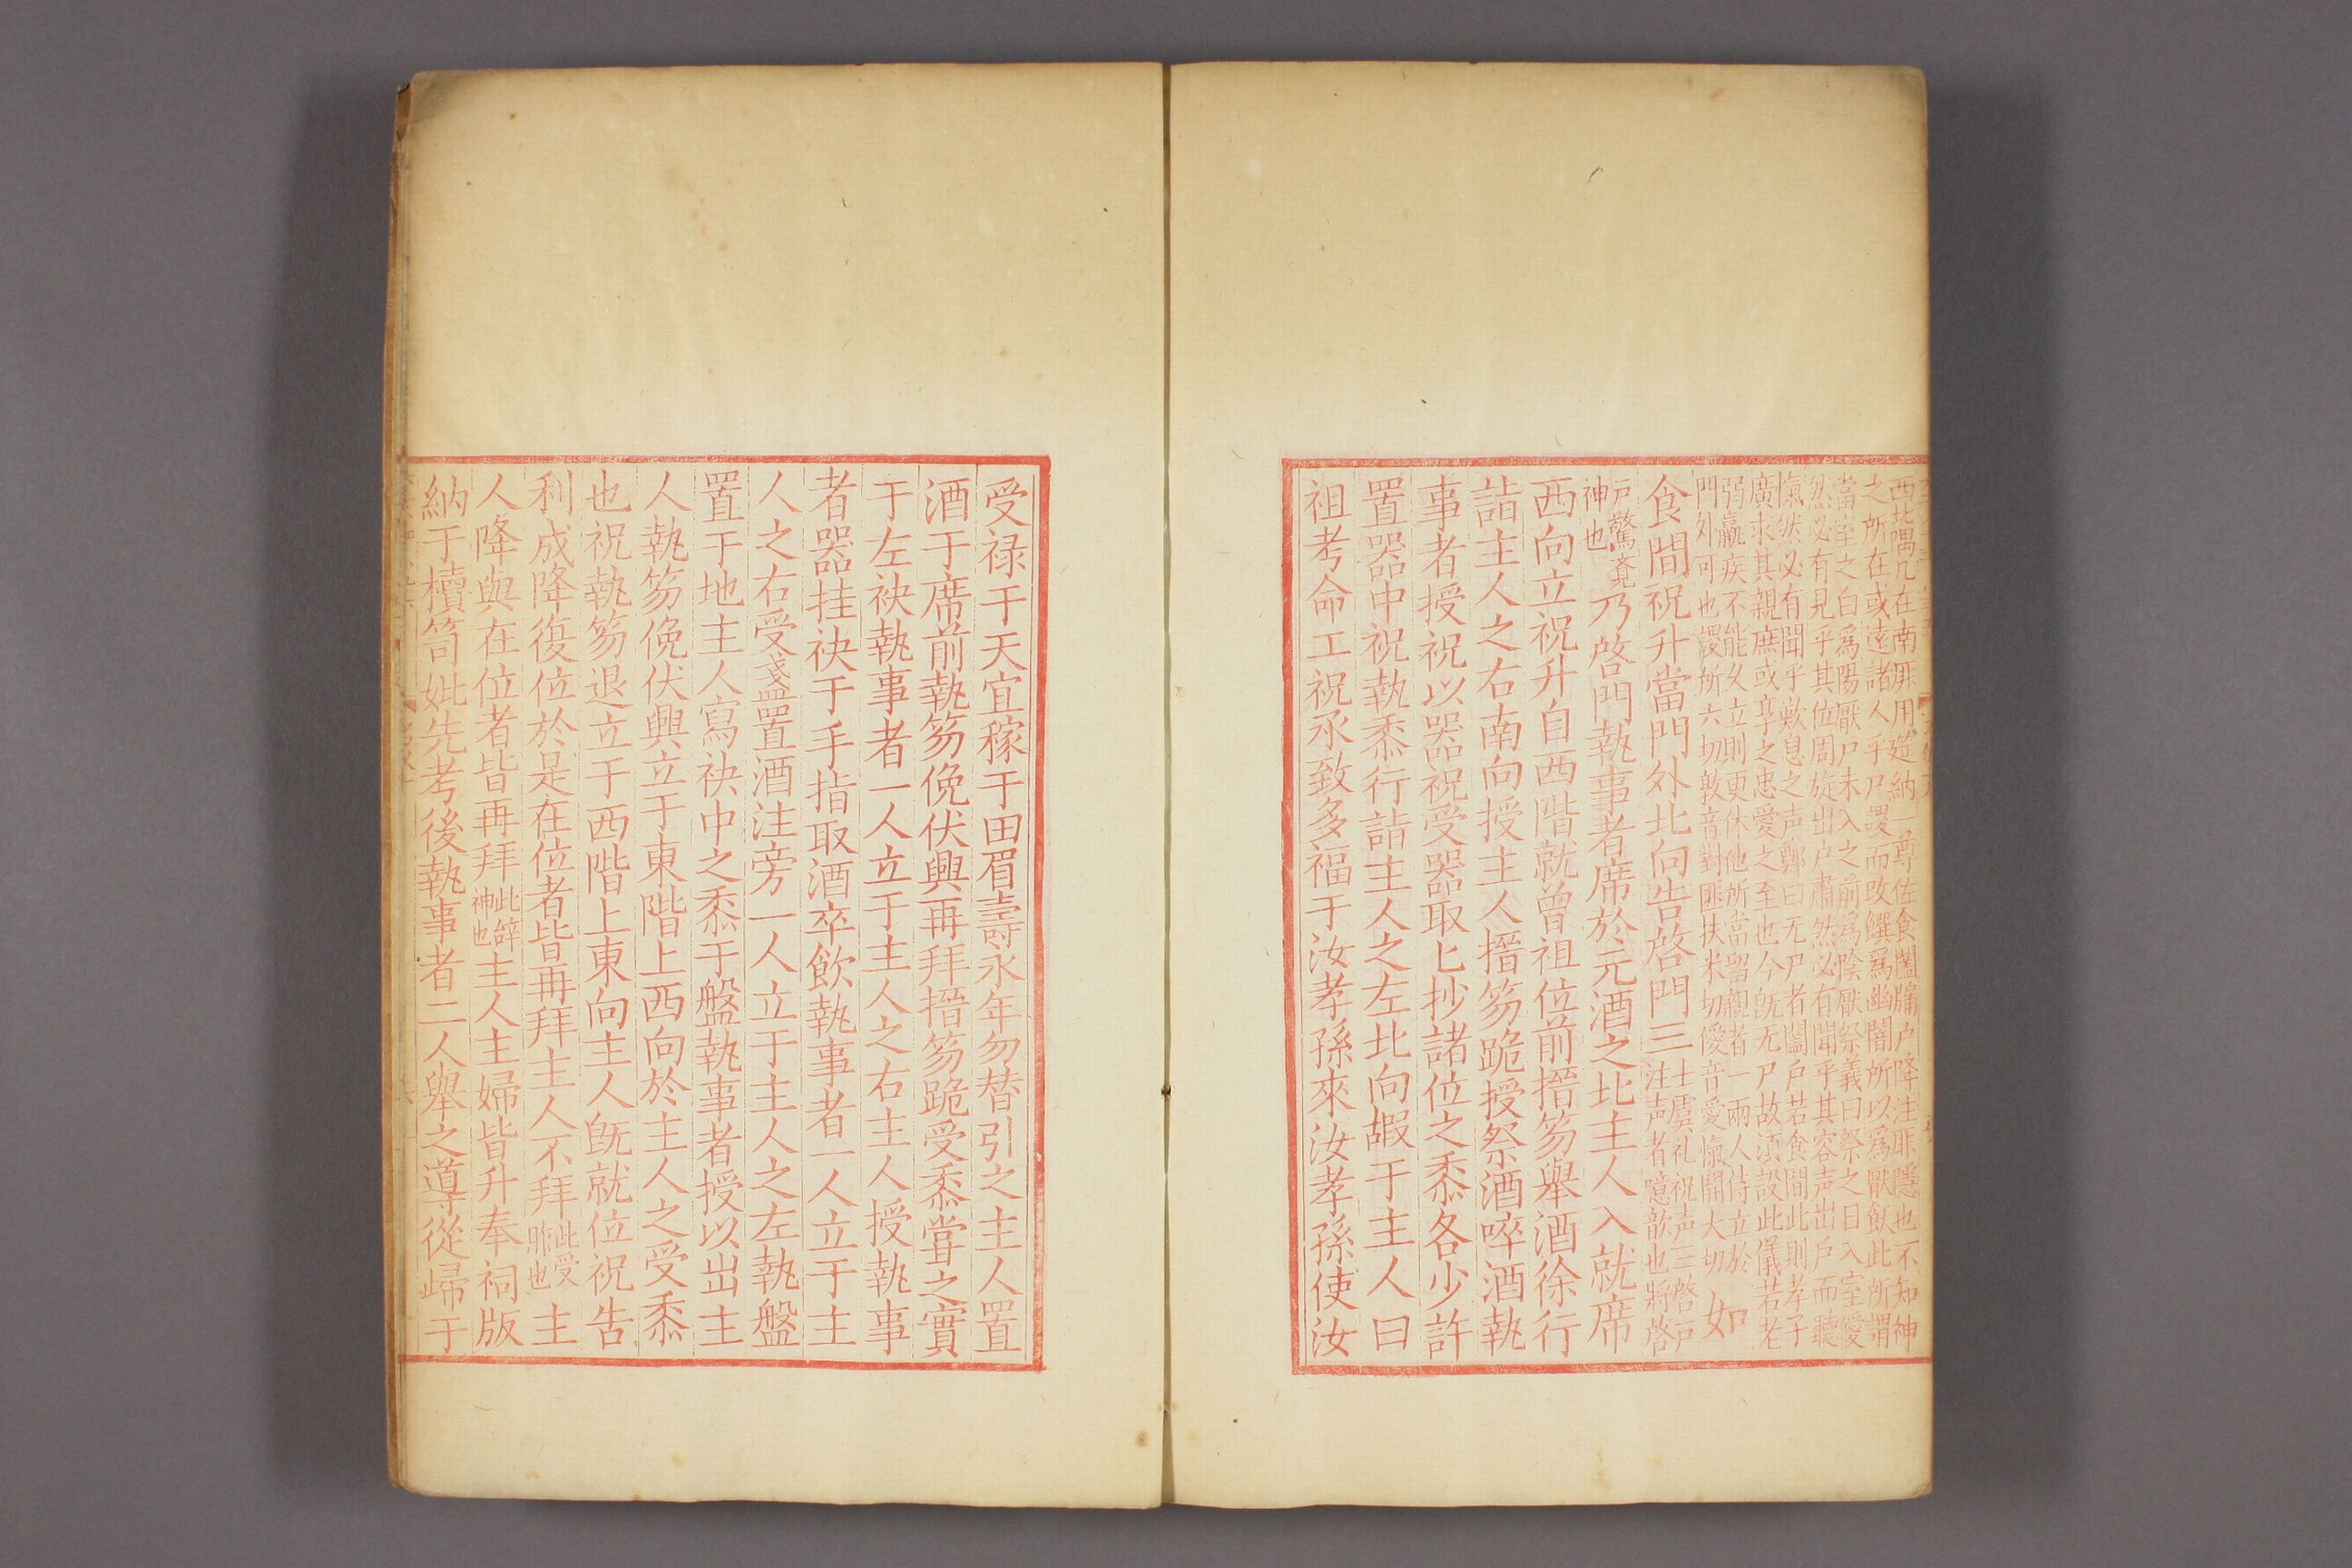 西北隅几在南厞用筵納一尊佐食闔牖户降注厞隱也不知神
之所在或遠諸人乎尸謖而改饌爲幽闇所以爲厭飫此所謂
當室之白爲陽厭尸未入之前爲陰厭祭義曰祭之日入室僾
然必有見乎其位周旋出户肅然必有聞乎其容声出户而聽
愾然必有聞乎歎息之声鄭曰无尸者闔户若食間此則孝子
廣求其親庶或享之忠愛之至也今旣无尸故湏設此儀若老
弱羸疾不能久立則更休他所當留親者一兩人侍立於
門外可也謖所六切敦音對厞扶未切僾音愛愾開大切
如
食間祝升當門外北向告啓門三
士虞礼祝声三啓户
注声者噫歆也將啓
户驚覺
神也
乃啓門執事者席於元酒之北主人入就席
西向立祝升自西階就曾祖位前搢笏舉酒徐行
詣主人之右南向授主人搢笏跪授祭酒啐酒執
事者授祝以器祝受器取匕抄諸位之黍各少許
置器中祝執黍行詣主人之左北向嘏于主人曰
祖考命工祝承致多福于汝孝孫來汝孝孫使汝
受禄于天宜稼于田眉壽永年勿替引之主人置
酒于席前執笏俛伏興再拜搢笏跪受黍甞之實
于左袂執事者一人立于主人之右主人授執事
者器挂袂于手指取酒卒飲執事者一人立于主
人之右受盞置酒注旁一人立于主人之左執盤
置于地主人寫袂中之黍于盤執事者授以出主
人執笏俛伏興立于東階上西向於主人之受黍
也祝執笏退立于西階上東向主人旣就位祝告
利成降復位於是在位者皆再拜主人不拜
此受
胙也
主
人降與在位者皆再拜
此辤
神也
主人主婦皆升奉祠版
納于櫝笥妣先考後執事者二人舉之導從歸于